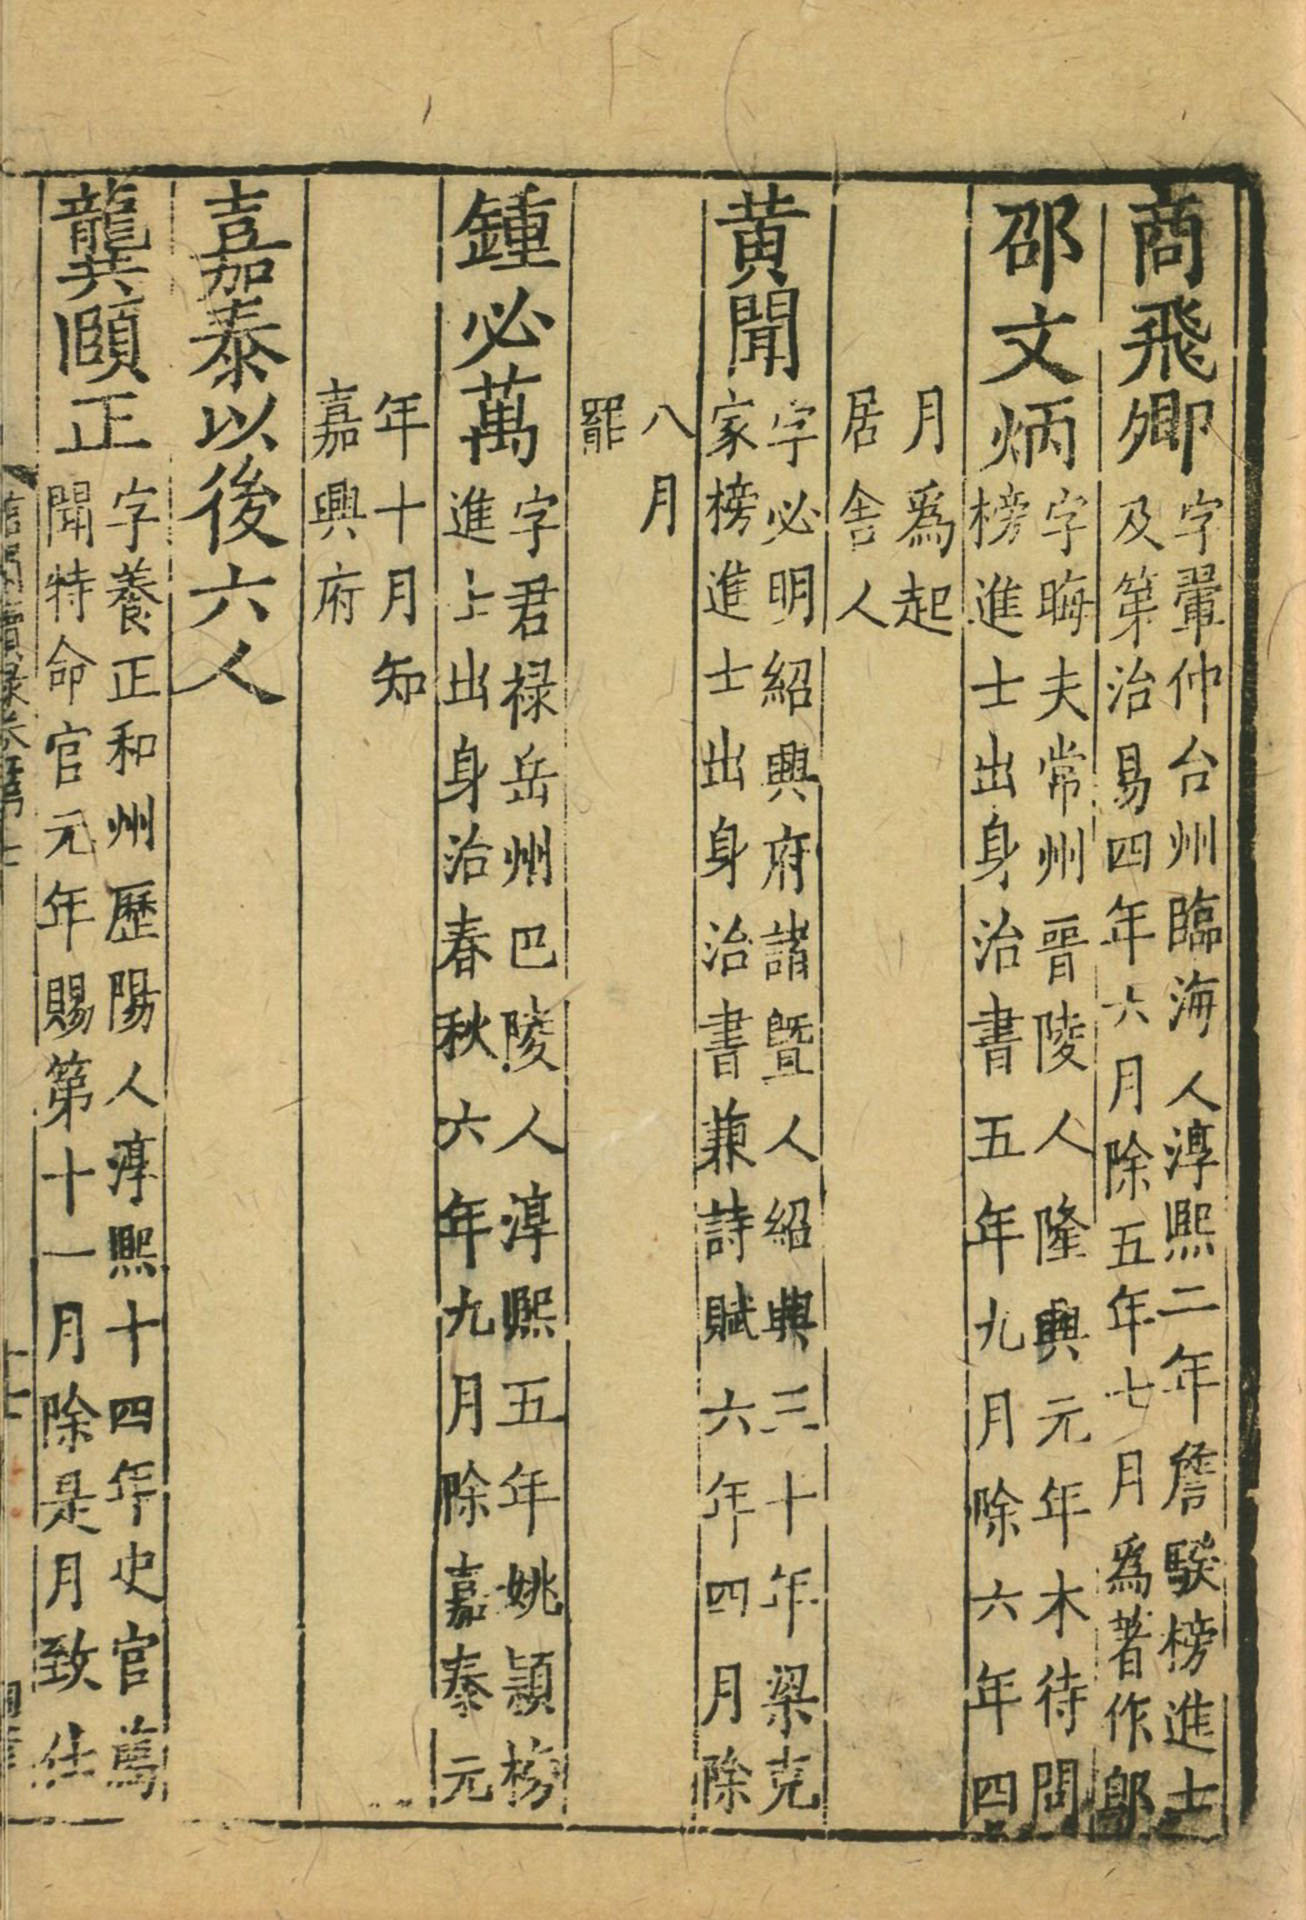 商飛卿字翬仲台州臨海人淳熙二年詹騤榜進士
及第治易四年六月除五年七月爲著作郎
邵文炳字晦夫常州晉陵人隆興元年木待問
榜進士出身治書五年九月除六年四
月爲起
居舎人
黄聞字必明紹興府諸暨人紹興三十年梁克
家榜進士出身治書兼詩賦六年四月除
八月
罷
鍾必萬字君禄岳州巴陵人淳熙五年姚穎榜
進士出身治春秋六年九月除嘉泰元
年十月知
嘉興府
嘉泰以後六人
龔頤正字養正和州歷陽人淳熙十四年史官薦
聞特命官元年賜第十一月除是月致仕